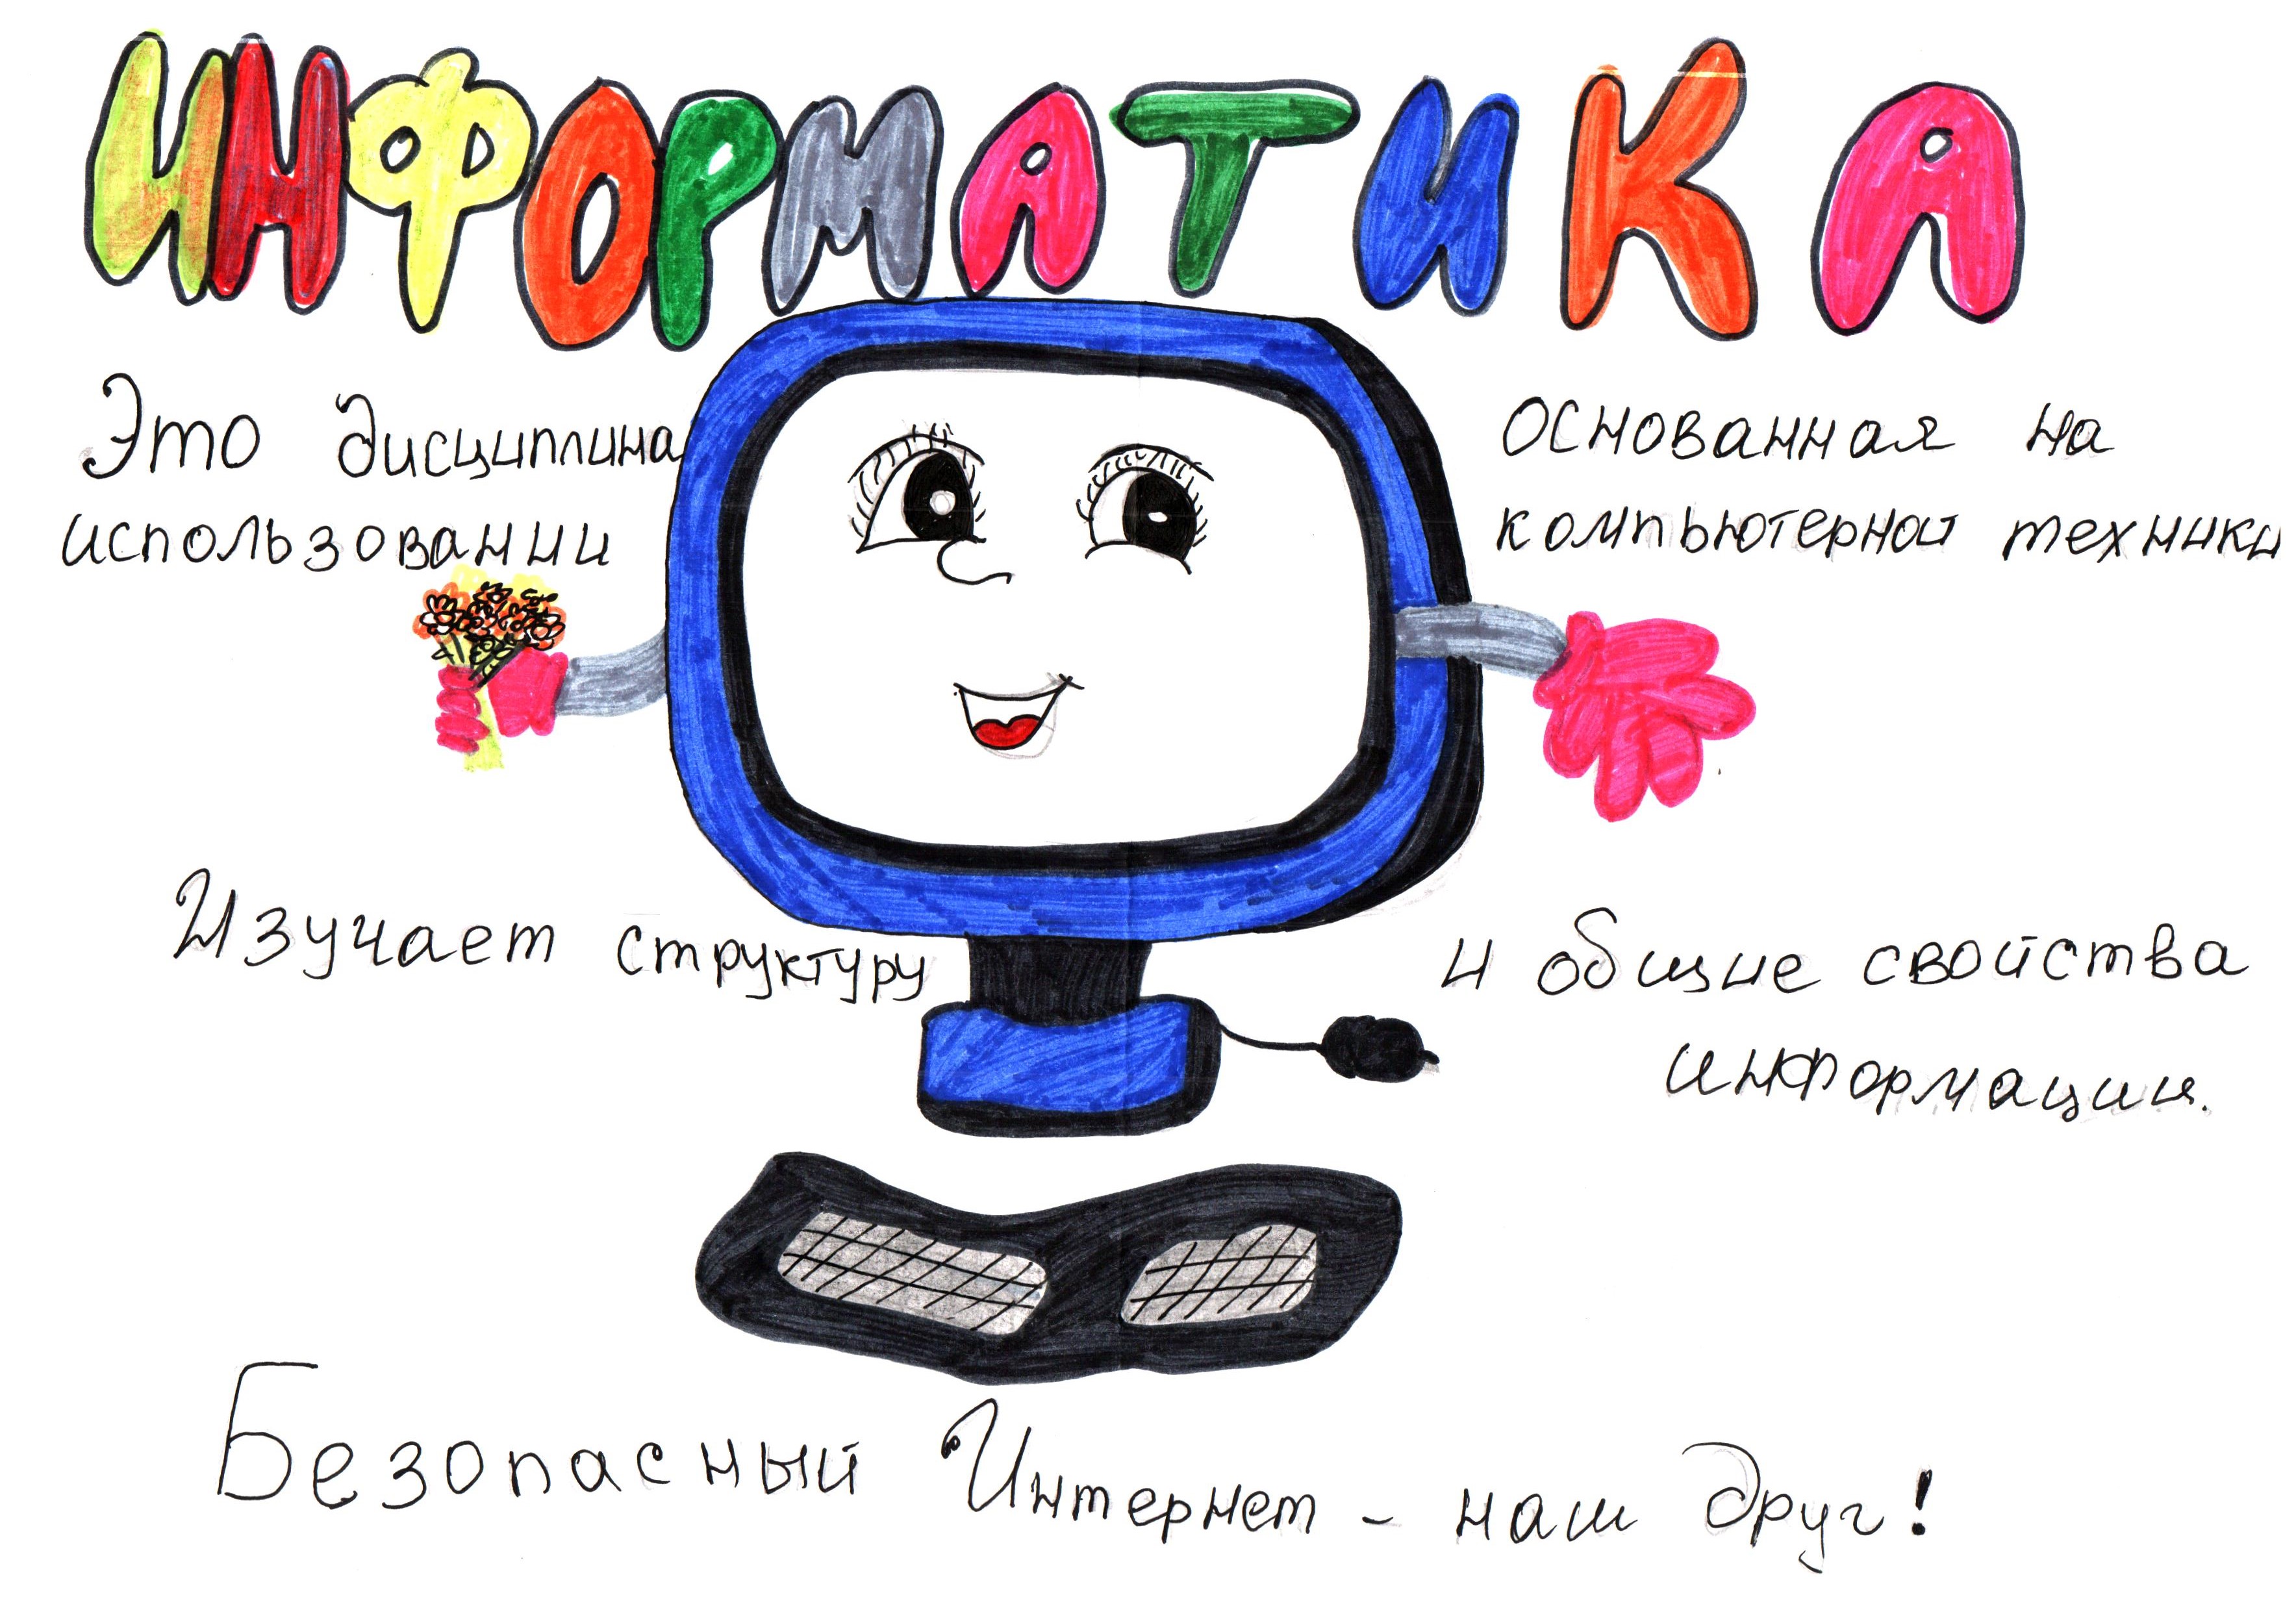 ИНФОРМАТИКА
Это дисциплина основанная на
использовании компьютерной техники
Изучает структуру и общие свойства
информации.
Безопасный Интернет - наш друг!